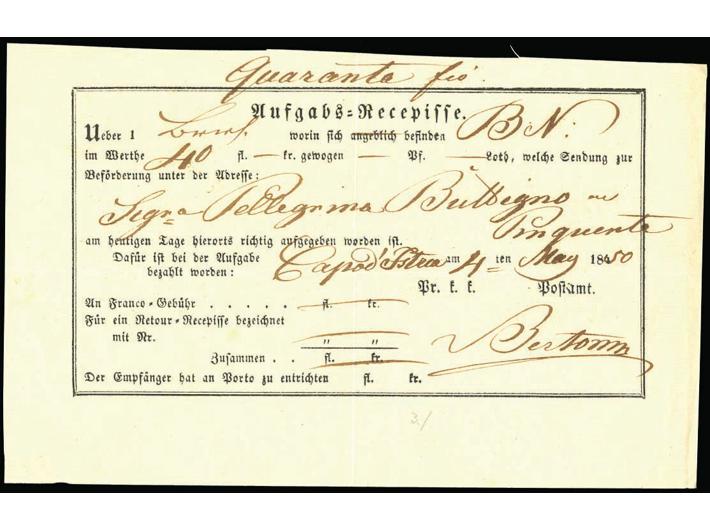 Quaranta fio.
Aufgabs-Recepisse.
Ueber 1 Brief worin sich angeblich befinden B N:
im Werthe 40 fl. — kr. gewogen — Pf. — Loth, welche Sendung zur
Beförderung unter der Adresse:
Sigra Pellegrina
Pinquente
am heutigen Tage hierorts richtig aufgegeben worden ist.
Dafür ist bei der Aufgabe bezahlt worden: Capod'Istria am 4 ten May 1850
Pr. k. k. Postamt.
An Franco-Gebühr . . . . . fl. kr.
Für ein Retour-Recepisse bezeichnet
mit Nr. " "
Zusammen . . fl. kr.
Der Empfänger hat an Porto zu entrichten fl. kr.
3./